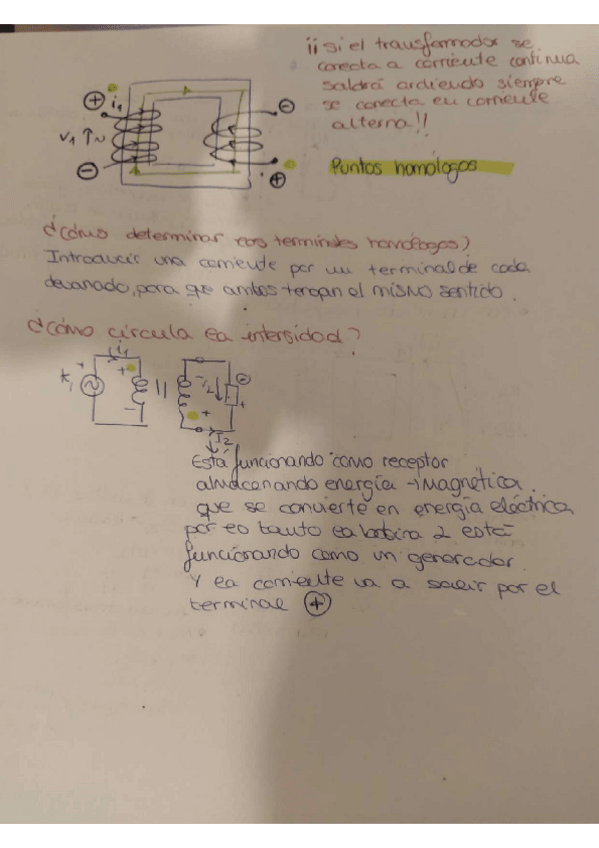 ¡¡ Si el transformador se
conecta a corriente continua
saldrá ardiendo siempre
se conecta en corriente
alterna!!
+ i1
V1 ↑~
-
-
+
Puntos homólogos
¿Cómo determinar los terminales homólogos?
Introducir una corriente por un terminal de cada
devanado, para que ambos tengan el mismo sentido.
¿Cómo circula la intensidad?
i1
+
+
-
+
-
+
I2
Está funcionando como receptor
almacenando energía → Magnética.
que se convierte en energía eléctrica
por lo tanto la bobina 2 está
funcionando como un generador.
Y la corriente va a salir por el
terminal +